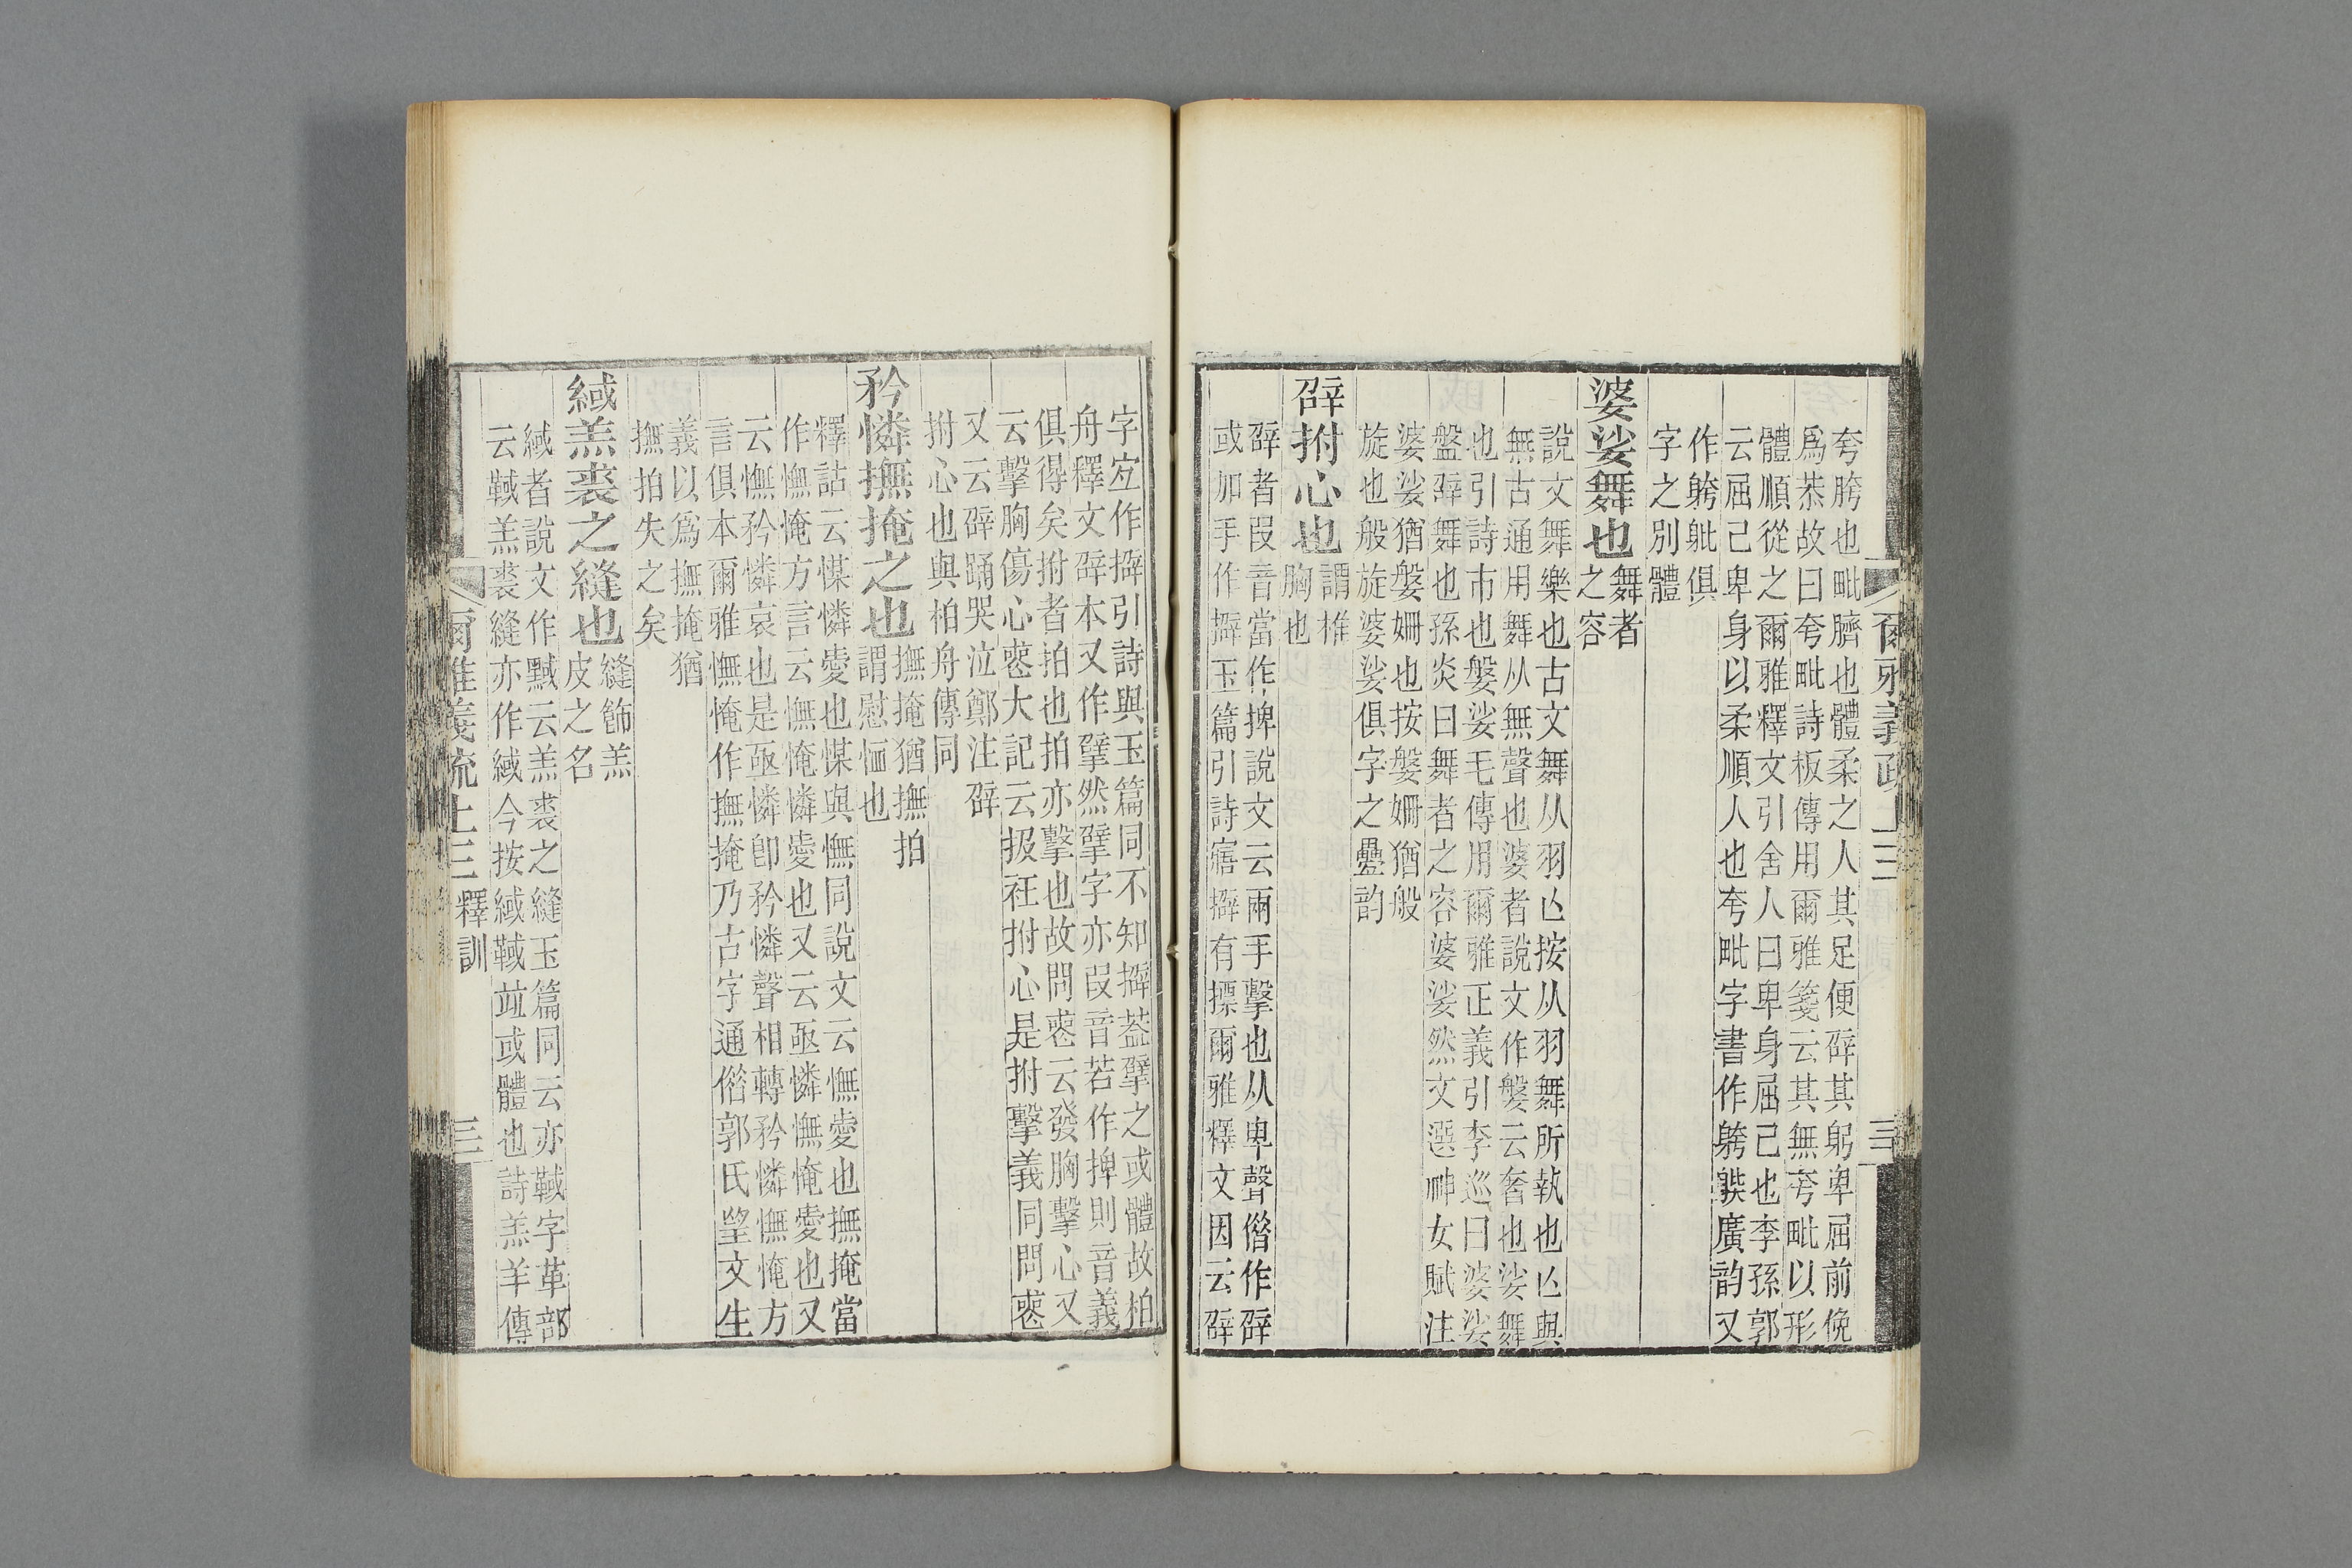 夸胯也毗臍也體柔之人其足便辟其躬卑屈前俛
爲恭故曰夸毗詩板傳用爾雅箋云其無夸毗以形
體順從之爾雅釋文引舍人曰卑身屈己也李孫郭
云屈己卑身以柔順人也夸毗字書作䠸𨈚廣韵又
作躬䠹俱
字之別體
婆娑舞也舞者
之容
說文舞樂也古文舞从羽亾按从羽舞所執也亾與
無古通用舞从無聲也婆者說文作媻云奢也娑舞
也引詩市也媻娑毛傳用爾雅正義引李巡曰婆娑
盤辟舞也孫炎曰舞者之容婆娑然文選神女賦注
婆娑猶媻姍也按媻姍猶般
旋也般旋婆娑俱字之疊韵
辟拊心也謂椎
胸也
辟者叚音當作捭說文云兩手擊也从卑聲偕作辟
或加手作擗玉篇引詩寤擗有摽爾雅釋文因云辟
字宐作擗引詩與玉篇同不知擗葢擘之或體故柏
舟釋文辟本又作擘然擘字亦叚音若作捭則音義
俱得矣拊者拍也拍亦擊也故問喪云發胸擊心又
云擊胸傷心喪大記云扱衽拊心是拊擊義同問喪
又云辟踊哭泣鄭注辟
拊心也與柏舟傳同
矜憐撫掩之也撫掩猶撫拍
謂慰恤也
釋詁云㥦憐愛也㥦與憮同說文云憮愛也撫掩當
作憮㤿方言云憮㤿憐愛也又云亟憐憮㤿愛也又
云憮矜憐哀也是亟憐卽矜憐聲相轉矜憐憮㤿方
言俱本爾雅憮㤿作撫掩乃古字通偕郭氏望文生
義以爲撫掩猶
撫拍失之矣
緎羔裘之縫也縫飾羔
皮之名
緎者說文作黬云羔裘之縫玉篇同云亦䩹字革部
云䩹羔裘縫亦作緎今按緎䩹竝或體也詩羔羊傳
爾雅義疏上三 釋訓 三